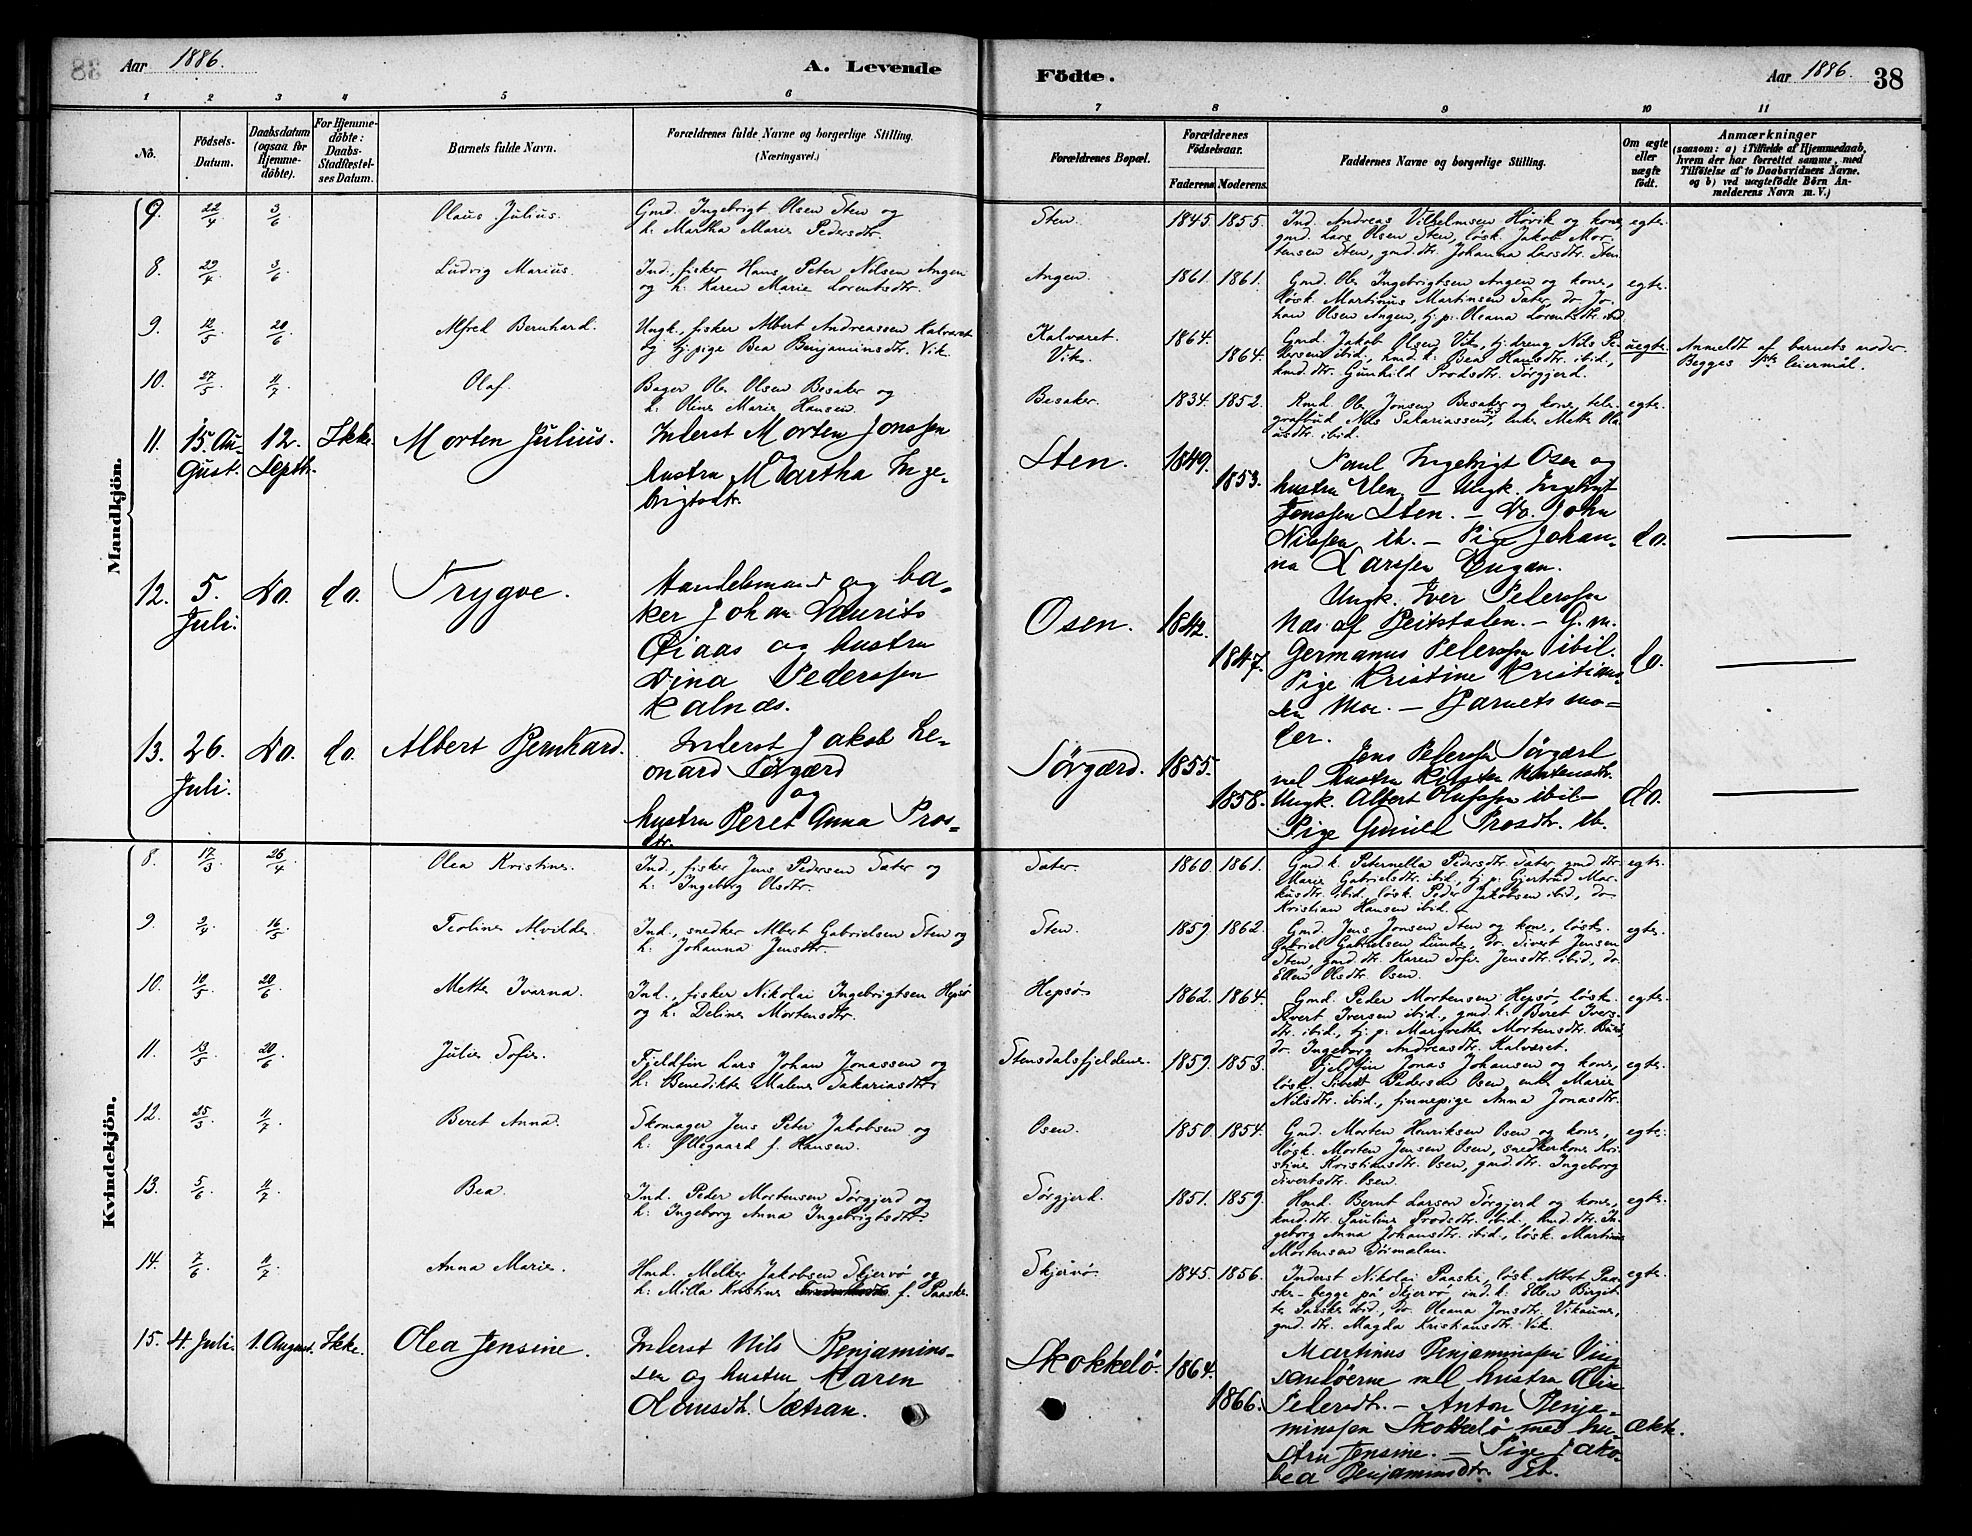 38 Aar 1886. A. Levende Födte. Aar 1886. 38
1 2 3 4 5 6 7 8 9 10 11
No. Födsels-Datum. Daabsdatum (ogsaa for Hjemmedöbte). For Hjemmedöbte: Daabs-Stadfæstelses Datum. Barnets fulde Navn. Forældrenes fulde Navne og borgerlige Stilling. (Næringsvei.) Forældrenes Bopæl. Forældrenes Födselsaar. Faderens. Moderens. Faddernes Navne og borgerlige Stilling. Om ægte eller uægte födt. Anmærkninger (saasom: a) i Tilfælde af Hjemmedaab, hvem der har forrettet samme, med Tilföielse af to Daabsvidners Navne. og b) ved uægtefödte Börn Anmelderens Navn m. V.)
Mandkjön.
9. 22/4 3/6 Olaus Julius. Gmd. Ingebrigt Olsen Sten og
h. Martha Marie Pedersdtr.
Sten. 1845. 1855. Ind. Andreas Vilhelmsen Høvik og kone, egte.
gmd. Lars Olsen Sten, løsk. Jakob Mor-
tensen Sten, gmd.dtr. Johanna Larsdtr. Sten.
8. 29/4 3/6 Ludvig Marius. Ind., fisker Hans Peter Nilsen Angen
og h. Karen Marie Lorentsdtr.
Angen. 1861. 1861. Gmd. Ole Ingebrigtsen Angen og kone, egte.
løsk. Martinus Martinsen Sater, do. Jo-
han Olsen Angen, tj.p. Oleana Lorentsdtr. ibid.
9. 10/5 20/6 Alfred Bernhard. Ungk., fisker Albert Andreassen Kalvaret
og tj.pige Bea Benjaminsdtr. Vik.
Kalvaret. Vik. 1864. 1864. Gmd. Jakob Olsen Vik, tj.dreng Nils Pe- uegte.
dersen ibid, kmd.k. Bea Hansdtr. ibid,
kmd.dtr. Gunhild Prodsdtr. Sørgjerd.
Anmeldt af barnets moder.
Begges 1ste leiermål.
10. 27/5 11/7 Olaf. Bager Ole Olsen Besaker og
h. Oline Marie Hansen.
Besaker. 1834. 1852. Kmd. Ole Jonsen Besaker og kone, tele- egte.
grafbud Nils Sakariassen, enke Mette
ibid.
11. 15. Au-gust. 12. Septb. Ikke. Morten Julius. Inderst Morten Jonssen
hustru Martha Inge-
brigtsdtr.
Sten. 1849. 1853. Paul Ingebrigt Osen og
hustru Elen. — Ungk. Ingebrigt
Jonssen Sten. — Do. John
Nilssen ib. — Pige Johan- do.
na Larssen
12. 5. Juli. Do. do. Trygve. Handelsmand og ba-
ker Johan Laurits
Øiaas og hustru
Dina Pederssen
Kalnæs.
Osen. 1842. 1847. Ungk. Iver Peterssen
Næs af Beitstaden. — G.m.
Germanus Peterssen ibid. do.
Pige Kristine Kristians-
den Moe. — Barnets mo-
der.
13. 26. Juli. Do. do. Albert Bernhard. Inderst Jakob Le-
onard Sørgærd
og
hustru Beret Anna Pros-
dtr.
Sørgærd. 1855. 1858. Jens Peterssen Sørgærd
med hustru Kirsten
Ungk. Albert Olufssen ibid — do.
Pige Gunild Prosdtr. ib.
Kvindekjön.
8. 17/3 26/4 Olea Kristine. Ind., fisker Jens Pedersen Sater og
h. Ingeborg Olsdtr.
Sater. 1860. 1861. Gmd.k. Peternella Pedersdtr. Sater, gmd.dtr. egte.
Marie Gabrielsdtr. ibid, tj.p. Gjertrud Mar-
kusdtr. ibid, løsk. Peder Jakobsen ibid, do.
Kristian Hansen ibid.
9. 2/4 16/5 Teoline Alvilde. Ind., snedker Albert Gabrielsen Sten og
h. Johanna Jensdtr.
Sten. 1859. 1862. Gmd. Jens Jonsen Sten og kone, løsk. egte.
Gabriel Gabrielsen Lunde, do. Sivert Jensen
Sten, gmd.dtr. Karen Sofie Jensdtr. ibid, do.
Ellen Olsdtr. Osen.
10. 10/5 20/6 Mette Ivarna. Ind., fisker Nikolai Ingebrigtsen Hepsø
og h. Deline Mortensdtr.
Hepsø. 1862. 1864. Gmd. Peder Mortensen Hepsø, løsk. egte.
Sivert Iversen ibid., gmd.k. Beret Ivers-
dtr. ibid., tj.p. Margrethe Mortensdtr.
do. Ingeborg Andreasdtr. Kalvaret.
11. 13/5 20/6 Julie Sofie. Fjeldfin Lars Johan Jonassen og
h. Benedikte Malene Sakariasdtr.
Stensdalsfjeldene. 1859. 1853. Fjeldfin Jonas Johansen og kone, egte.
løsk. Sivert Pedersen Osen, enke Marie
Nilsdtr. ibid., finnepige Anna Jonasdtr.
12. 25/5 11/7 Beret Anna. Skomager Jens Peter Jakobsen og
h. Øllegaard f. Hansen.
Osen. 1850. 1854. Gmd. Morten Henriksen Osen og kone, egte.
Ungk. Morten Jensen Osen, snedkerkone Kri-
stine Kristiansdtr. Osen, gmd.dtr. Ingeborg
Sivertsdtr. Osen.
13. 5/6 11/7 Bea. Ind. Peder Mortensen Sørgjerd og
h. Ingeborg Anna Ingebrigtsdtr.
Sørgjerd. 1851. 1859. Hmd. Bernt Larsen Sørgjerd og kone, egte.
kmd.dtr. Pauline Prodsdtr. ibid., kmd.dtr. In-
geborg Anna Johansdtr. ibid., løsk. Martinus
Mortensen Sørmalen.
14. 7/6 11/7 Anna Marie. Hmd. Melker Jakobsen Skjervø og
h. Milla Kristine f. Paaske.
Skjervø. 1845. 1856. Inderst Nikolai Paaske, løsk. Albert Paa- egte.
ske – begge på Skjervø ind.k. Ellen Birgit-
te Paaske ibid., do. Oleana Jonsdtr. Vikaune,
gmd.dtr. Magda Kristiansdtr. Vik.
15. 4. Juli. 1. August. Ikke. Olea Jensine. Inderst Nils Benjamins-
sen og hustru Maren
Olausdt. Sætran.
Skokkelø. 1864. 1866. Martinus Benjaminssen Ving-
sandøerne med hustru Elin
Pedersdt. — Anton Benja-
minssen Skokkelø med hu- Ækte.
stru Jensine. — Pige Jako-
bea Benjaminsdtr. ib.